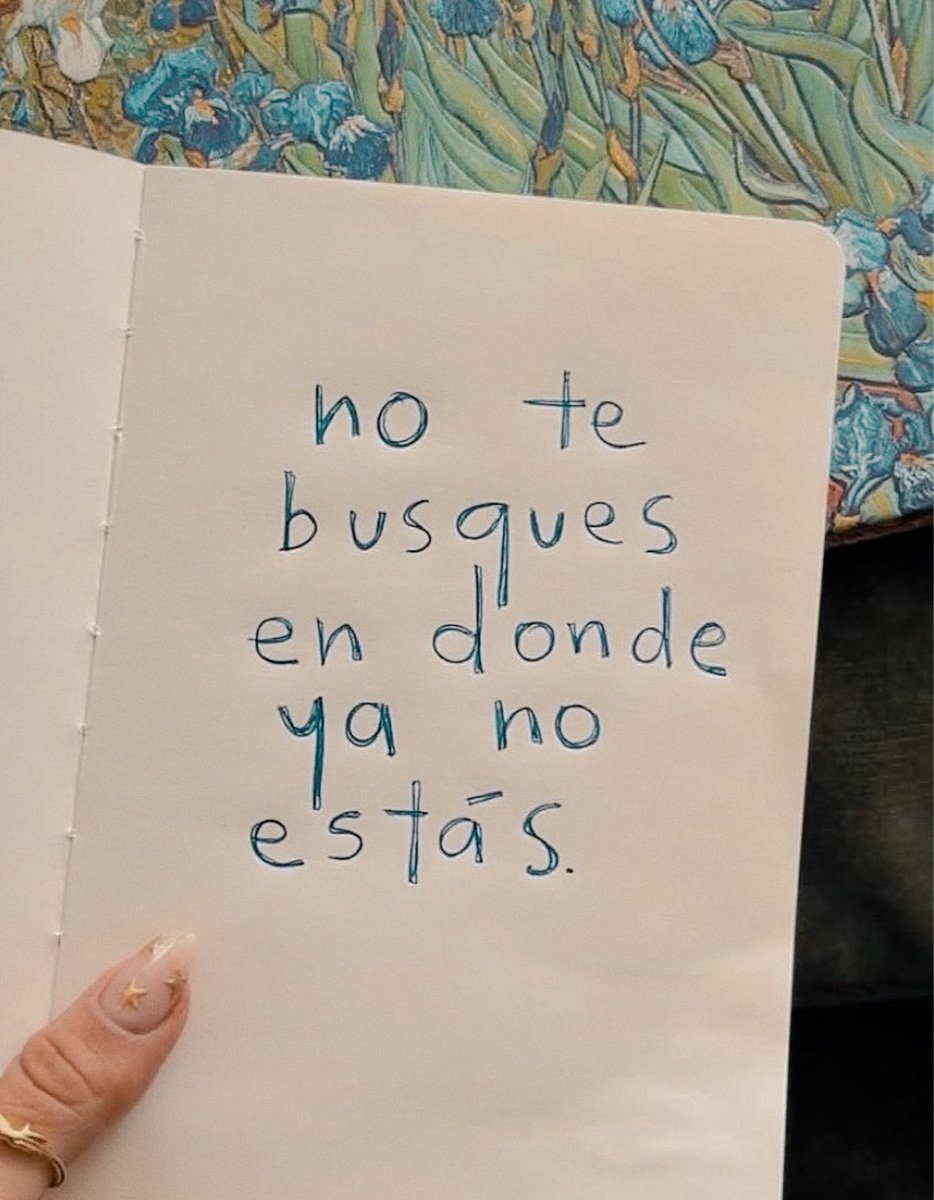 no te
busques
en donde
ya no
estás.